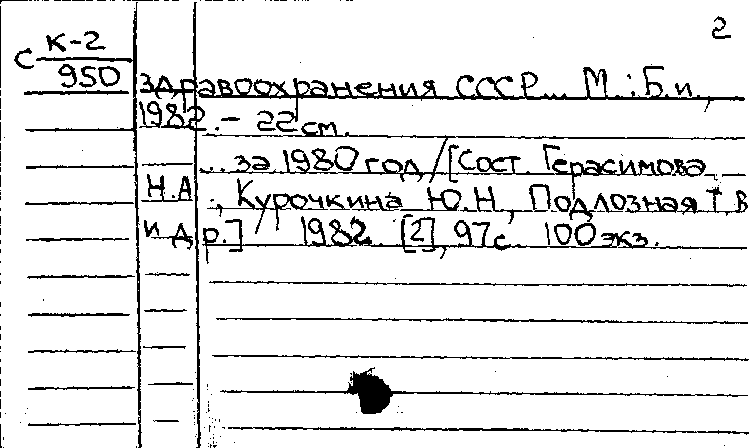 2
С К-2
950
здравоохранения СССР... М.: Б.и.,
1982. - 22 см.
... за 1980 год / [Сост. Герасимова
Н.А., Курочкина Ю.Н., Подлозная Т.В
и др.] 1982. [2], 97с. 100 экз.